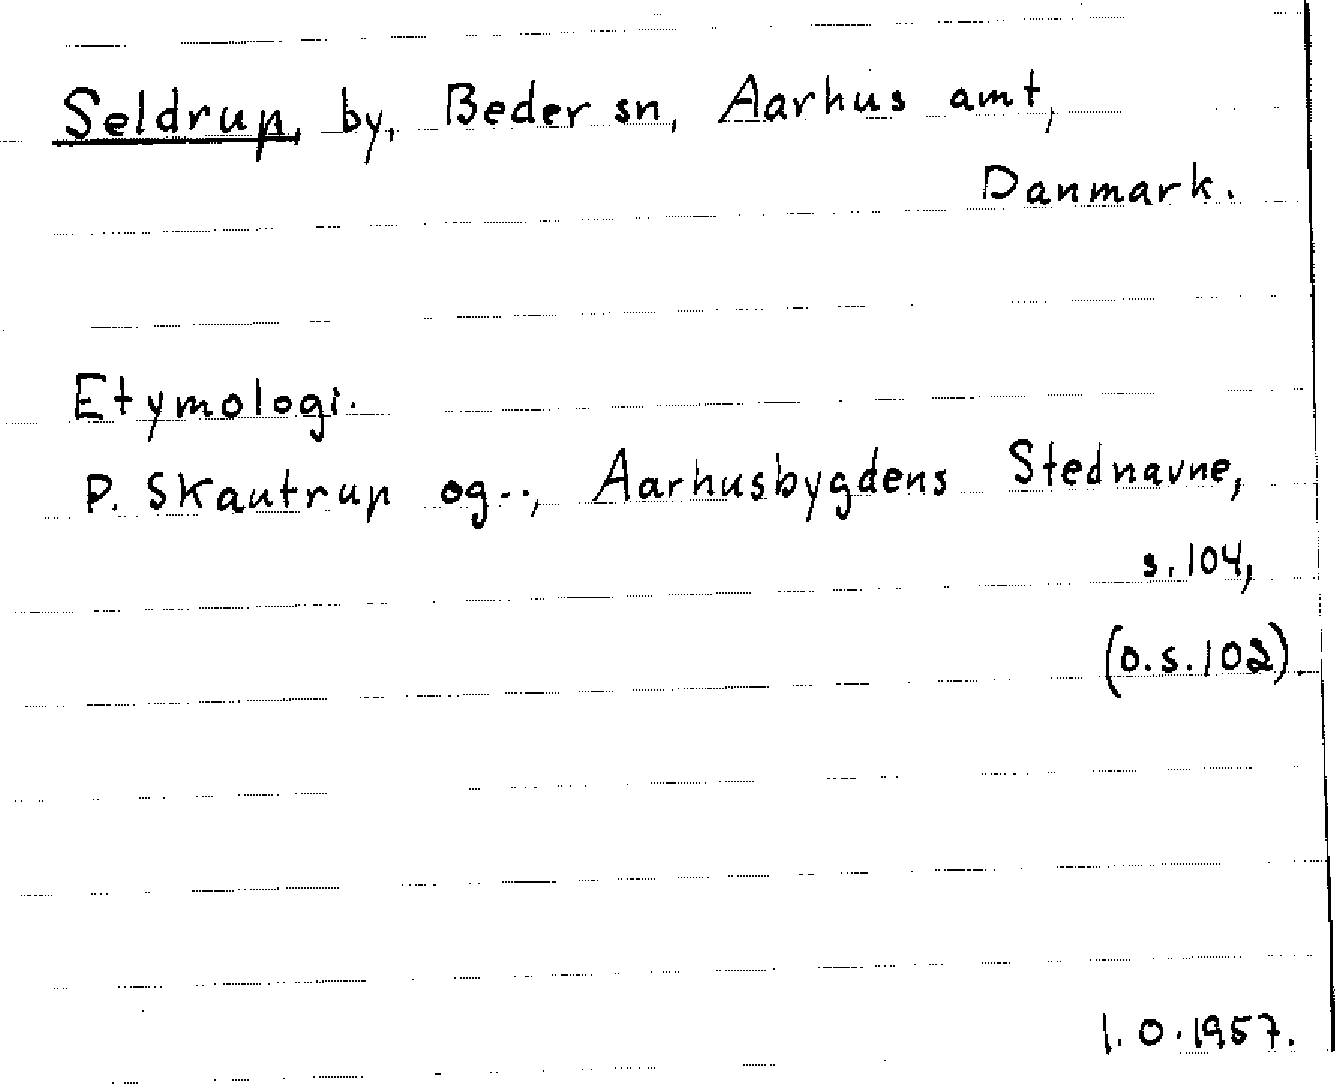 Seldrup, by, Beder sn, Aarhus amt,
Danmark.
Etymologi.
P. Skautrup og.., Aarhusbygdens Stednavne,
s. 104,
(o.s. 102).
1. O. 1957.